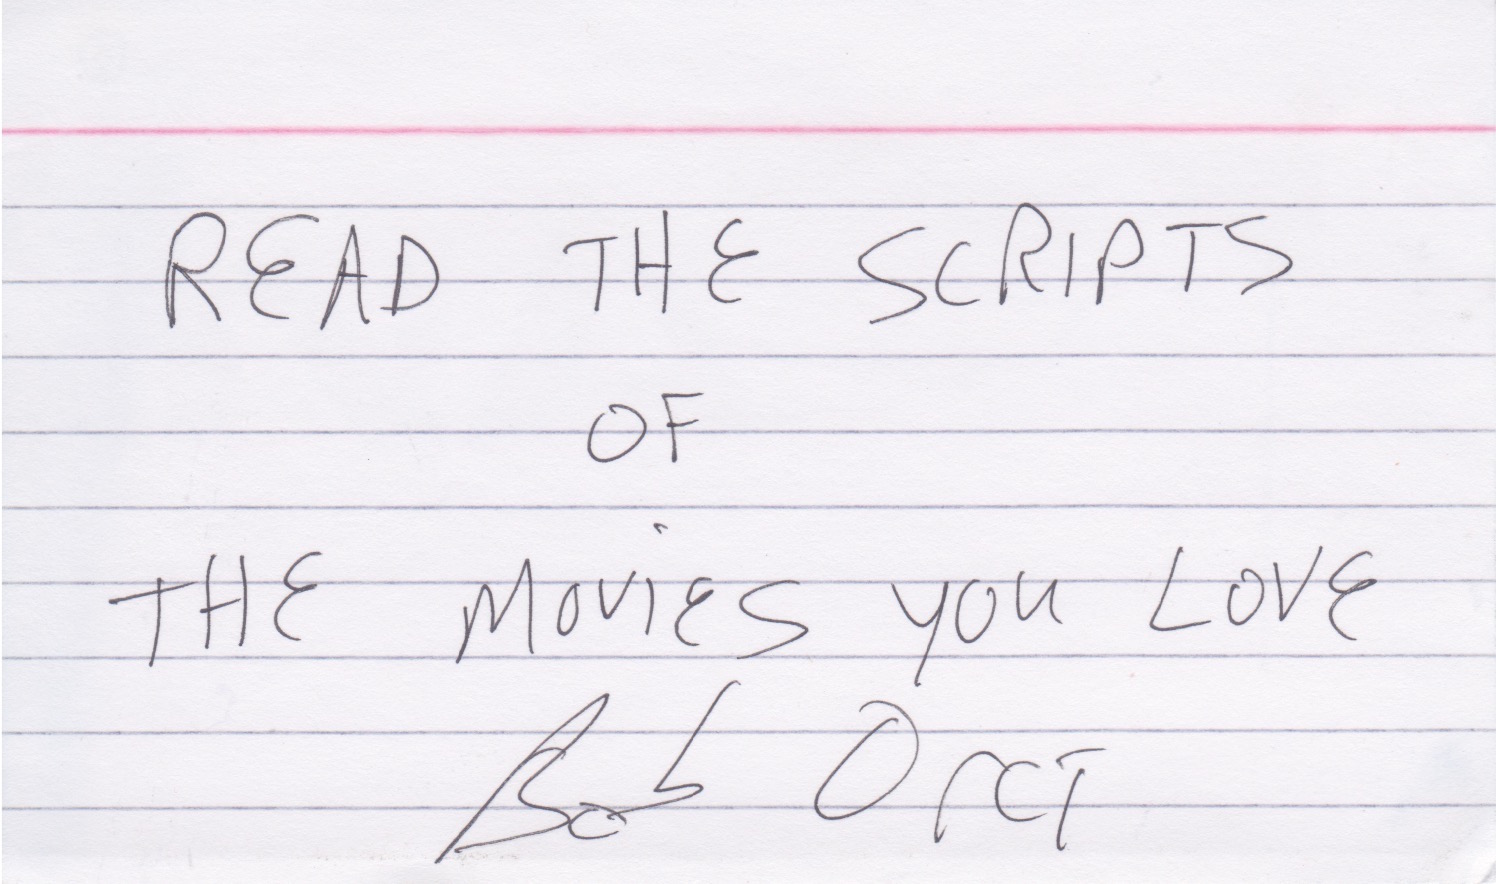 READ THE SCRIPTS
OF
THE MOVIES YOU LOVE
Bob Orci